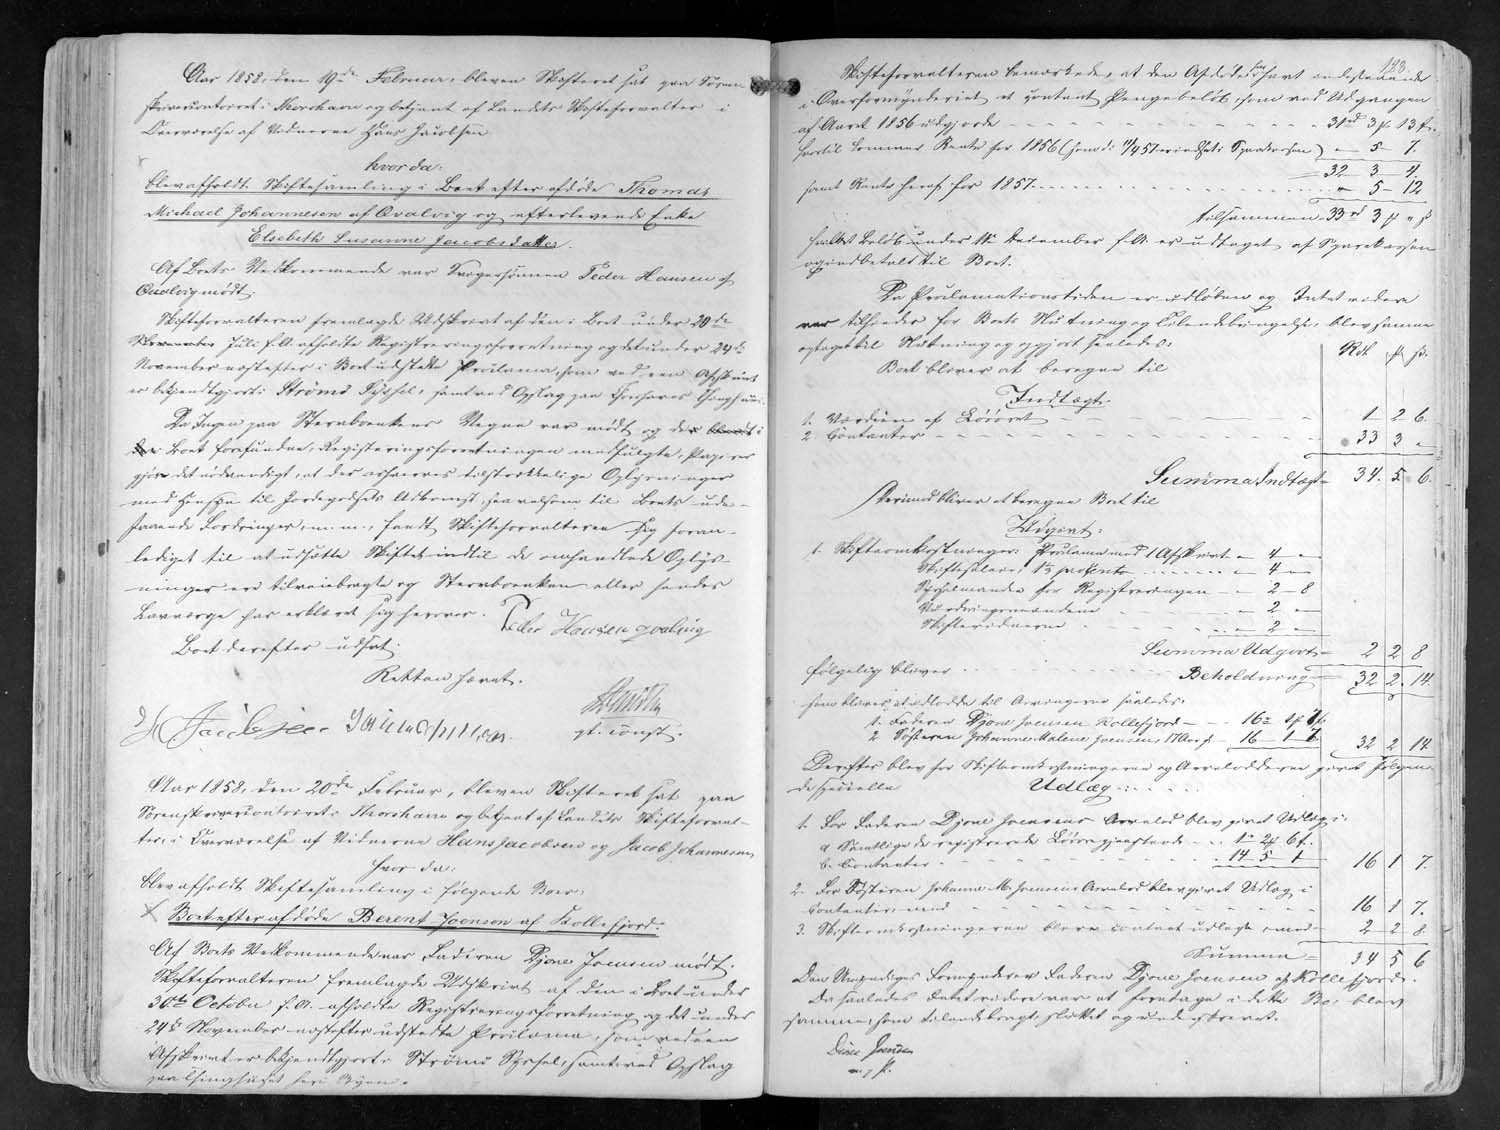 Aar 1858, den 19de Februar, blev Skifteret sat paa Soren-
skrivercontoiret i Thorshavn og betjent af Landets Skifteforvalter i
Overværelse af Vidnerne Hans Jacobsen
hvor da:
blev afholdt Skiftesamling i Boet efter afdøde Thomas
Michael Johannesen af Qvalvig og efterlevende Enke
Elsebeth Susanne Jacobsdatter.
Af Boets Vedkommende var Svogersønnen Peder Hansen af
Qvalvig mødt.
Skifteforvalteren fremlagde Udskrivt af den i Boet under 20de
Juli f.A. afholdte Registreringsforretning og det under 24de
November næstefter i Boet udstedte Proclama, som ved een Afskrivt
er bekjendtgjort i Strømø Syssel, samt ved Opslag paa Thorshavns Thinghuus.
Da Ingen paa Sterboenkens Vegne var mødt og de i
Boet forefundne, Registreringsforretningen medfulgte, Papirer
gjør det nødvendigt, at der erhverves tilstrækkelige Oplysninger
med Hensyn til Jordegodsets Adkomst, saavelsom til Boets ude-
staaende Fordringer, m.m., fandt Skifteforvalteren sig foran-
lediget til at udsætte Skiftet indtil de omhandlede Oplys-
ninger ere tilveiebragte og Sterboenken eller hendes
Laugværge har erklæret sig herover. Peder Hansen qvalvig
Boet derefter udsat.
Retten hævet.
H Jacobsen
gl. const.
Aar 1858, den 20de Februar, blev Skifteret sat paa
Sorenskrivercontoiret i Thorshavn og betjent af Landets Skifteforval-
ter, i Overværelse af Vidnerne Hans Jacobsen og Jacob Johannesen,
hvor da:
blev afholdt Skiftesamling i følgende Boer:
Boet efter afdøde Berent Joensen af Kollefjord:
Af Boets Vedkommende var Faderen Djone Joensen mødt.
Skifteforvalteren fremlagde Udskrivt af den i Boet under
30te October f.A. afholdte Registreringsforretning og det under
24de November næstefter udstedte Proclama, som ved een
Afskrivt er bekjendtgjort i Strømø Syssel, samt ved Opslag
paa Thinghuset her i Byen.
123.
Skifteforvalteren bemærkede, at den Afdøde har havt indestaaende
i Overformynderiet et contant Pengebeløb, som ved Udgangen
af Aaret 1856 udgjorde 31rd 3 ₰ 13 ß.
hertil kommer Rente for 1856 (som d: 11/4 57 er indsat i Sparekassen) " - 5 - 7.
32 3 4.
samt Rente heraf for 1857 " 5 - 12
tilsammen 33rd 3 ₰ " ß
hvilket Beløb under 15 December f.A. er udtaget af Sparekassen
og indbetalt til Boet.
Da Proclamationstiden er udløben og Intet videre
var tilhinder for Boets Slutning og Tilendebringelse, blev samme
optaget til Slutning og opgjort saaledes:
Boet bliver at beregne til
Rdl. ₰ ß.
Indtægt.
1. Værdien af Løsøret 1 2 6.
2 Contanter 33 3 "
Summa Indtægt 34. 5. 6.
Derimod bliver at beregne Boet til
Udgivt:
1. Skifteomkostninger: Proclama med 1 Afskrivt " 4 "
Skiftesalair, 1⅓ procent " 4 "
Sysselmanden for Registreringen " 2 - 8
Vurderingsmændene " 2 "
Skiftevidnerne " 2 "
Summa Udgivt 2 2 8
følgelig bliver Beholdning 32 2. 14.
som bliver at udlodde til Arvingerne saaledes:
1. Faderen Djone Joensen Kollefjord 16rd 1 ₰ 7 ß.
2 Søsteren Johanne Malene Joensen, 17 Aar gl. 16 - 1 7. 32 2 14
Derefter blev for Skifteomkostningerne og Arvelodderne givet følgen-
de specielle Udlæg
1. For Faderen Djone Joensens Arvelod blev givet Udlæg i:
a Samtlige de registrerede Løsøregjenstande 1rd 2 ₰ 6 ß.
b. Contanter 14 5 1 16 1 7.
2. For Søsteren Johanne M. Joensens Arvelod blev givet Udlæg i
Contanter, med 16 1 7.
3. Skifteomkostningerne bleve contant udlagte med 2 - 2 8.
Summa 34 5 6
Den Umyndiges Formynder Faderen Djone Joensen af Kollefjord.
Da saaledes Intet videre var at foretage i dette Bo, blev
samme, som tilendebragt, sluttet og underskrevet.
Joensen
m. f. P.